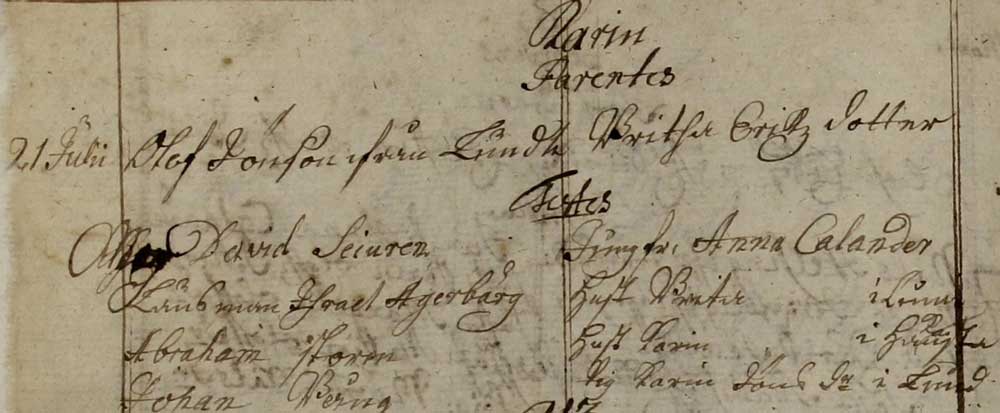 Karin
Parentes
21 Julii Olof Jönson ifrån Lunda Britha Erichz dotter
Testes
David Seiuren Jungfr. Anna Calander
Länsman Israel Agerbärg Hust Brita i Lunda
Abraham Storm Hust Karin i
Johan Pig Karin Jöns Dr i Lund